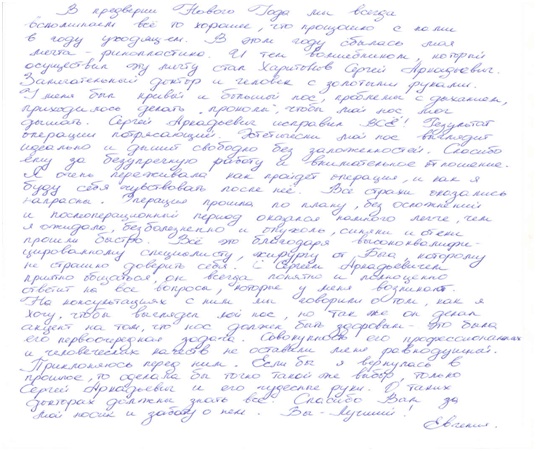 В преддверии Нового Года мы всегда
вспоминаем всё то хорошее, что прошошло с нами
в году уходящем. В этом году сбылась моя
мечта - ринопластика. И тем волшебником, который
осуществил эту мечту стал Харитонов Сергей Аркадьевич.
Замечательный доктор и человек с золотыми руками.
У меня был кривой и большой нос, проблемы с дыханием,
приходилось делать проколы, чтобы мой нос мог
дышать. Сергей Аркадьевич исправил ВСЁ! Результат
операции потрясающий. Эстетически мой нос выглядит
идеально и дышит свободно без заложенностей. Спасибо
ему за безупречную работу и внимательное отношение.
Я очень переживала как пройдёт операция, и как я
буду себя чувствовать после неё. Все страхи оказались
напрасны. Операция прошла по плану, без осложнений
и послеоперационный период оказался намного легче, чем
я ожидала, безболезненно и опухоль, синяки и отёки
прошли быстро. Всё это благодаря высококвалифи-
цированному специалисту, хирургу от Бога, которому
не страшно доверить себя. С Сергеем Аркадьевичем
приятно общаться, он всегда понятно и полноценно
ответит на все вопросы, которые у меня возникают.
На консультациях с ним мы говорили о том, как я
хочу, чтобы выглядел мой нос, но так же он делал
акцент на том, что нос должен быть здоровым - это была
его первоочередная задача. Совокупность его профессиональных
и человеческих качеств не оставили меня равнодушной.
Преклоняюсь перед ним. Если бы я вернулась в
прошлое, то сделала бы точно такой же выбор только
Сергей Аркадьевич и его чудесные руки. О таких
докторах должны знать все. Спасибо Вам за
мой носик и заботу о нём. Вы - Лучший!
Евгения.